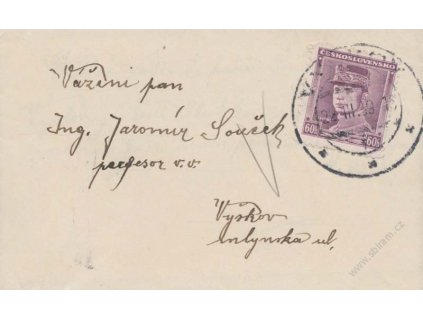 ČESKOSLOVENSKO
60h 60h
Vážení pan
Ing. Jaromír Souček
profesor v.v.
Vyškov
mlynska ul,
www.sbiram.cz